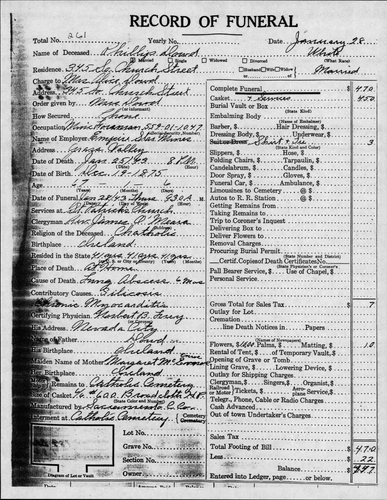 RECORD OF FUNERAL
Total No. 261 Yearly No. Date January 28
Name of Deceased Dowd White
Married Single Widowed Divorced (What Race)
Residence 345 So. Church Street Husband Wife Widow of Married
Charge to Mrs. Dowd
345 So. Church Street
Order given by Mrs. Dowd
How Secured Phone
Occupation Mine Foreman 559-01-1047
Name of Employer Empire Star Mines
Grass Valley
Date of Death Jan 25/43 8 P.M.
Date of Birth Dec. 19-1875
Age 67
Date of Funeral Jan 28/43 Thurs 930 A.M.
Services at St. Patricks Church
Clergyman Rev. James O'Meara
Religion of the Deceased Catholic
Birthplace Ireland
Resided in the State 41 yrs 41 yrs 41 yrs
Place of Death At Home
Cause of Death Lung Abscess 6 mos
Contributory Causes Silicosis
Chronic Myocarditis
Certifying Physician
His Address Nevada City
Name of Father Dowd
His Birthplace Ireland
Maiden Name of Mother Margaret
Her Birthplace Ireland
Remains to Catholic Cemetery
Size of Casket
Manufactured by Sacramento C. Co.
Interment at Catholic Cemetery Cemetery Crematory
Lot No.
Grave No.
Section No.
Owner
Diagram of Lot or Vault
Complete Funeral $ 470
Casket & Services 450
Burial Vault or Box
(State Kind)
Embalming Body
(State Kind)
Barber, $ Hair Dressing, $
Dressing Body, $ Underwear, $
Suit or Dress Shirt & Tie 3
(State Kind and Color)
Slippers, $ Hose, $
Folding Chairs, $ Tarpaulin, $
Candelabrum, $ Candles, $
Door Spray, $ Gloves, $
Funeral Car, $ Ambulance, $
Limousines to Cemetery @ $
Autos to R. R. Station @ $
Getting Remains from
Taking Remains to
Trip to Coroner's Inquest
Delivering Box to
Deliver Flowers to
Removal Charges
Procuring Burial Permit
(State Number and District)
Certif. Copies of Death Certificate No.
(State Physician's or Coroner's)
Pall Bearer Service, $ Use of Chapel, $
Personal Service
Gross Total for Sales Tax $ 7
Outlay for Lot
Cremation
line Death Notices in Papers
Flowers, $ Palms, $ Matting, $ 10
Rental of Tent, $ of Temporary Vault, $
Opening of Grave or Tomb
Lining Grave, $ Lowering Device, $
Outlay for Shipping Charges
Clergyman, $ Singers, $ Organist, $
Telegr., Phone, Cable or Radio Charges
Cash Advanced
Out of town Undertaker's Charges
Sales Tax
Total Footing of Bill $ 470
Less 22
Balance $ 447
Entered into Ledger, page or below.